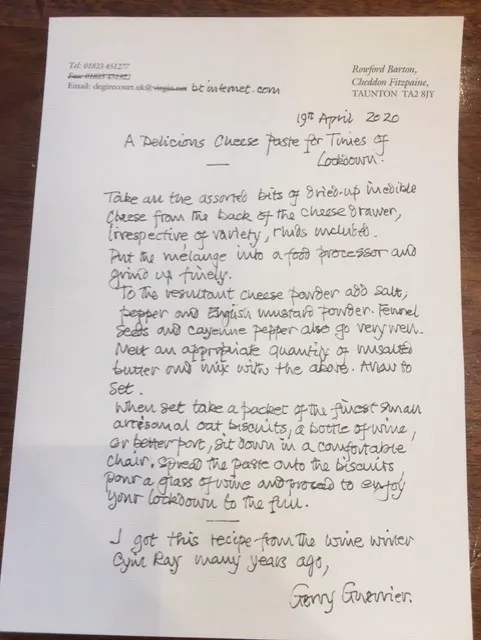 Tel: 01823 451277
Fax: 01823 451422
Email: degirecourt.uk@virgin.net btinternet.com
Rowford Barton,
Cheddon Fitzpaine,
TAUNTON TA2 8JY
19th April 2020
A Delicious Cheese Paste for Times of
Lockdown.
Take all the assorted bits of dried-up inedible
cheese from the back of the cheese drawer,
irrespective of variety, rinds included.
Put the mélange into a food processor and
grind up finely.
To the resultant cheese powder add salt,
pepper and English mustard powder. Fennel
seeds and cayenne pepper also go very well.
Melt an appropriate quantity of unsalted
butter and mix with the above. Allow to
set.
When set take a packet of the finest small
artesanal oat biscuits, a bottle of wine,
or better port, sit down in a comfortable
chair. Spread the paste onto the biscuits,
pour a glass of wine and proceed to enjoy
your lockdown to the full.
I got this recipe from the wine writer
Cyril Ray many years ago,
Gerry